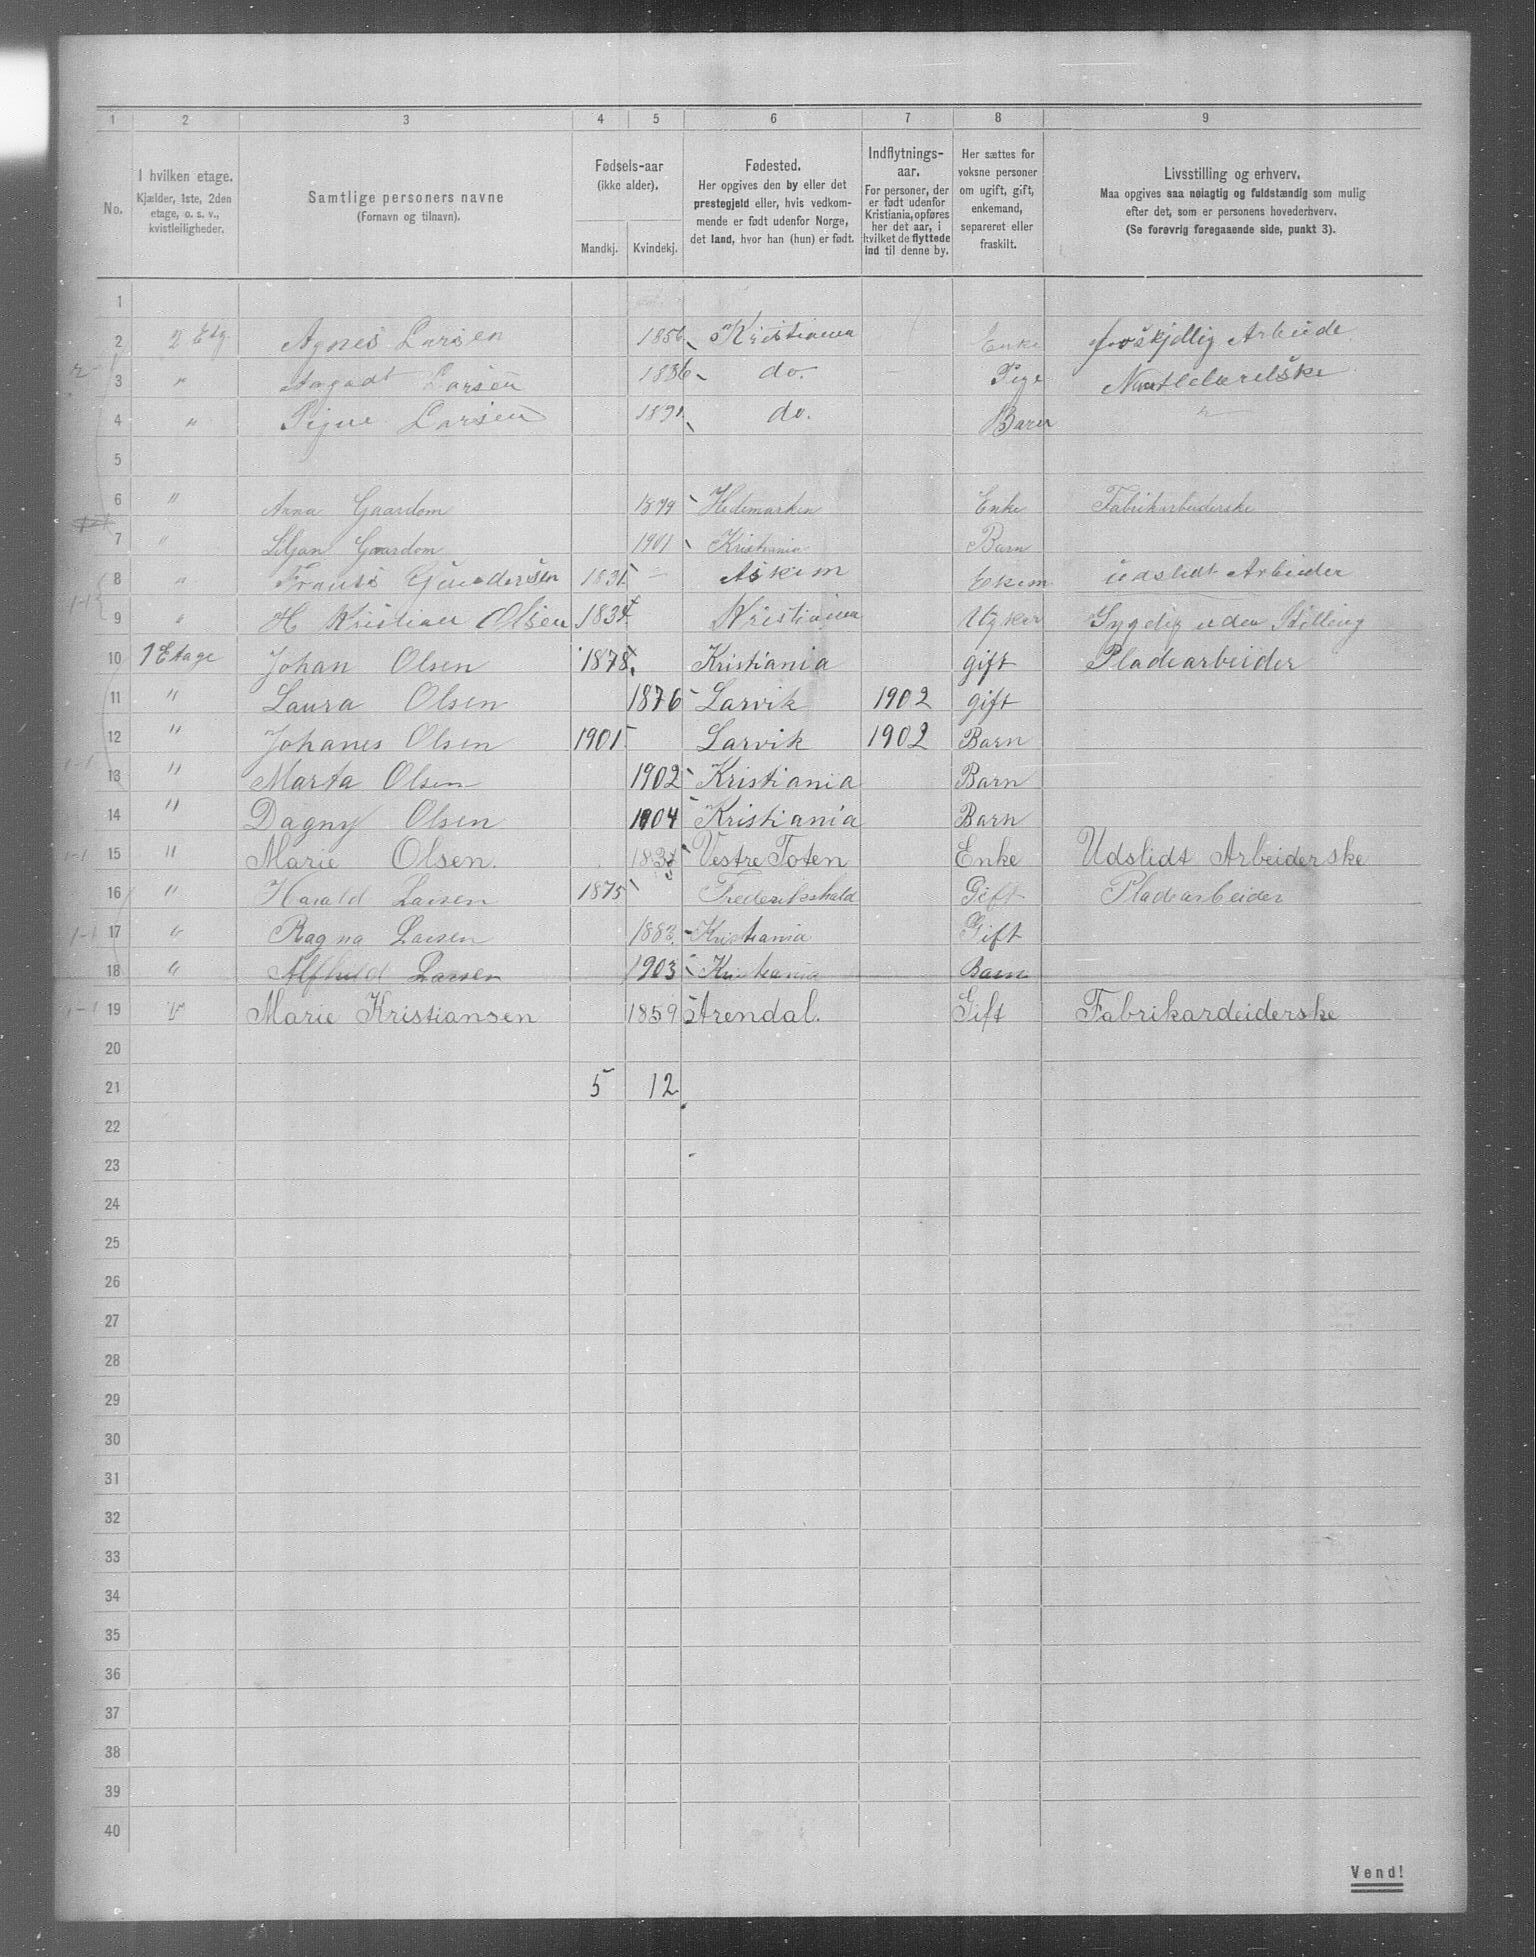 1 2 3 4 5 6 7 8 9
No.
I hvilken etage.
Kjælder, 1ste, 2den
etage, o. s. v.,
kvistleiligheder.
Samtlige personers navne
(Fornavn og tilnavn).
Fødsels-aar
(ikke alder).
Mandkj. Kvindekj.
Fødested.
Her opgives den by eller det
prestegjeld eller, hvis vedkom-
mende er født udenfor Norge,
det land, hvor han (hun) er født.
Indflytnings-
aar.
For personer, der
er født udenfor
Kristiania, opføres
her det aar, i
hvilket de flyttede
ind til denne by.
Her sættes for
voksne personer
om ugift, gift,
enkemand,
separeret eller
fraskilt.
Livsstilling og erhverv.
Maa opgives saa nøiagtig og fuldstændig som mulig
efter det, som er personens hovederhverv.
(Se forøvrig foregaaende side, punkt 3).
1
2 2 Etg. Agnes Larsen 1856 Kristiania Enke foskjellig Arbeide
3 " Larsen 1886 do. Pige
4 " Signe Larsen 1891 do. Barn "
5
6 " Anna Gaardom 1879 Hedemarken Enke Fabrikarbeiderske
7 " Liljan Gaardom 1901 Kristiania Barn
8 " Frants Gundersen 1831 Askim Ekem udslidt Arbeider
9 " H Kristian Olsen 1834 Kristiania Sygelig uden Stilling
10 1 Etage Johan Olsen 1878 Kristiania gift Pladearbeider
11 " Laura Olsen 1876 Larvik 1902 gift
12 " Johanes Olsen 1901 Larvik 1902 Barn
13 " Marta Olsen 1902 Kristiania Barn
14 " Dagny Olsen 1904 Kristiania Barn
15 " Marie Olsen. 1834 Vestre Toten Enke Udslidt Arbeiderske
16 " Harald Larsen 1875 Frederikshald Gift Pladearbeider
17 " Ragna Larsen 1883 Kristiania Gift
18 " Alfhild Larsen 1903 Kristiania Barn
19 " Marie Kristiansen 1859 Arendal. Gift Fabrikardeiderske
20
21 5 12
22
23
24
25
26
27
28
29
30
31
32
33
34
35
36
37
38
39
40
Vend!